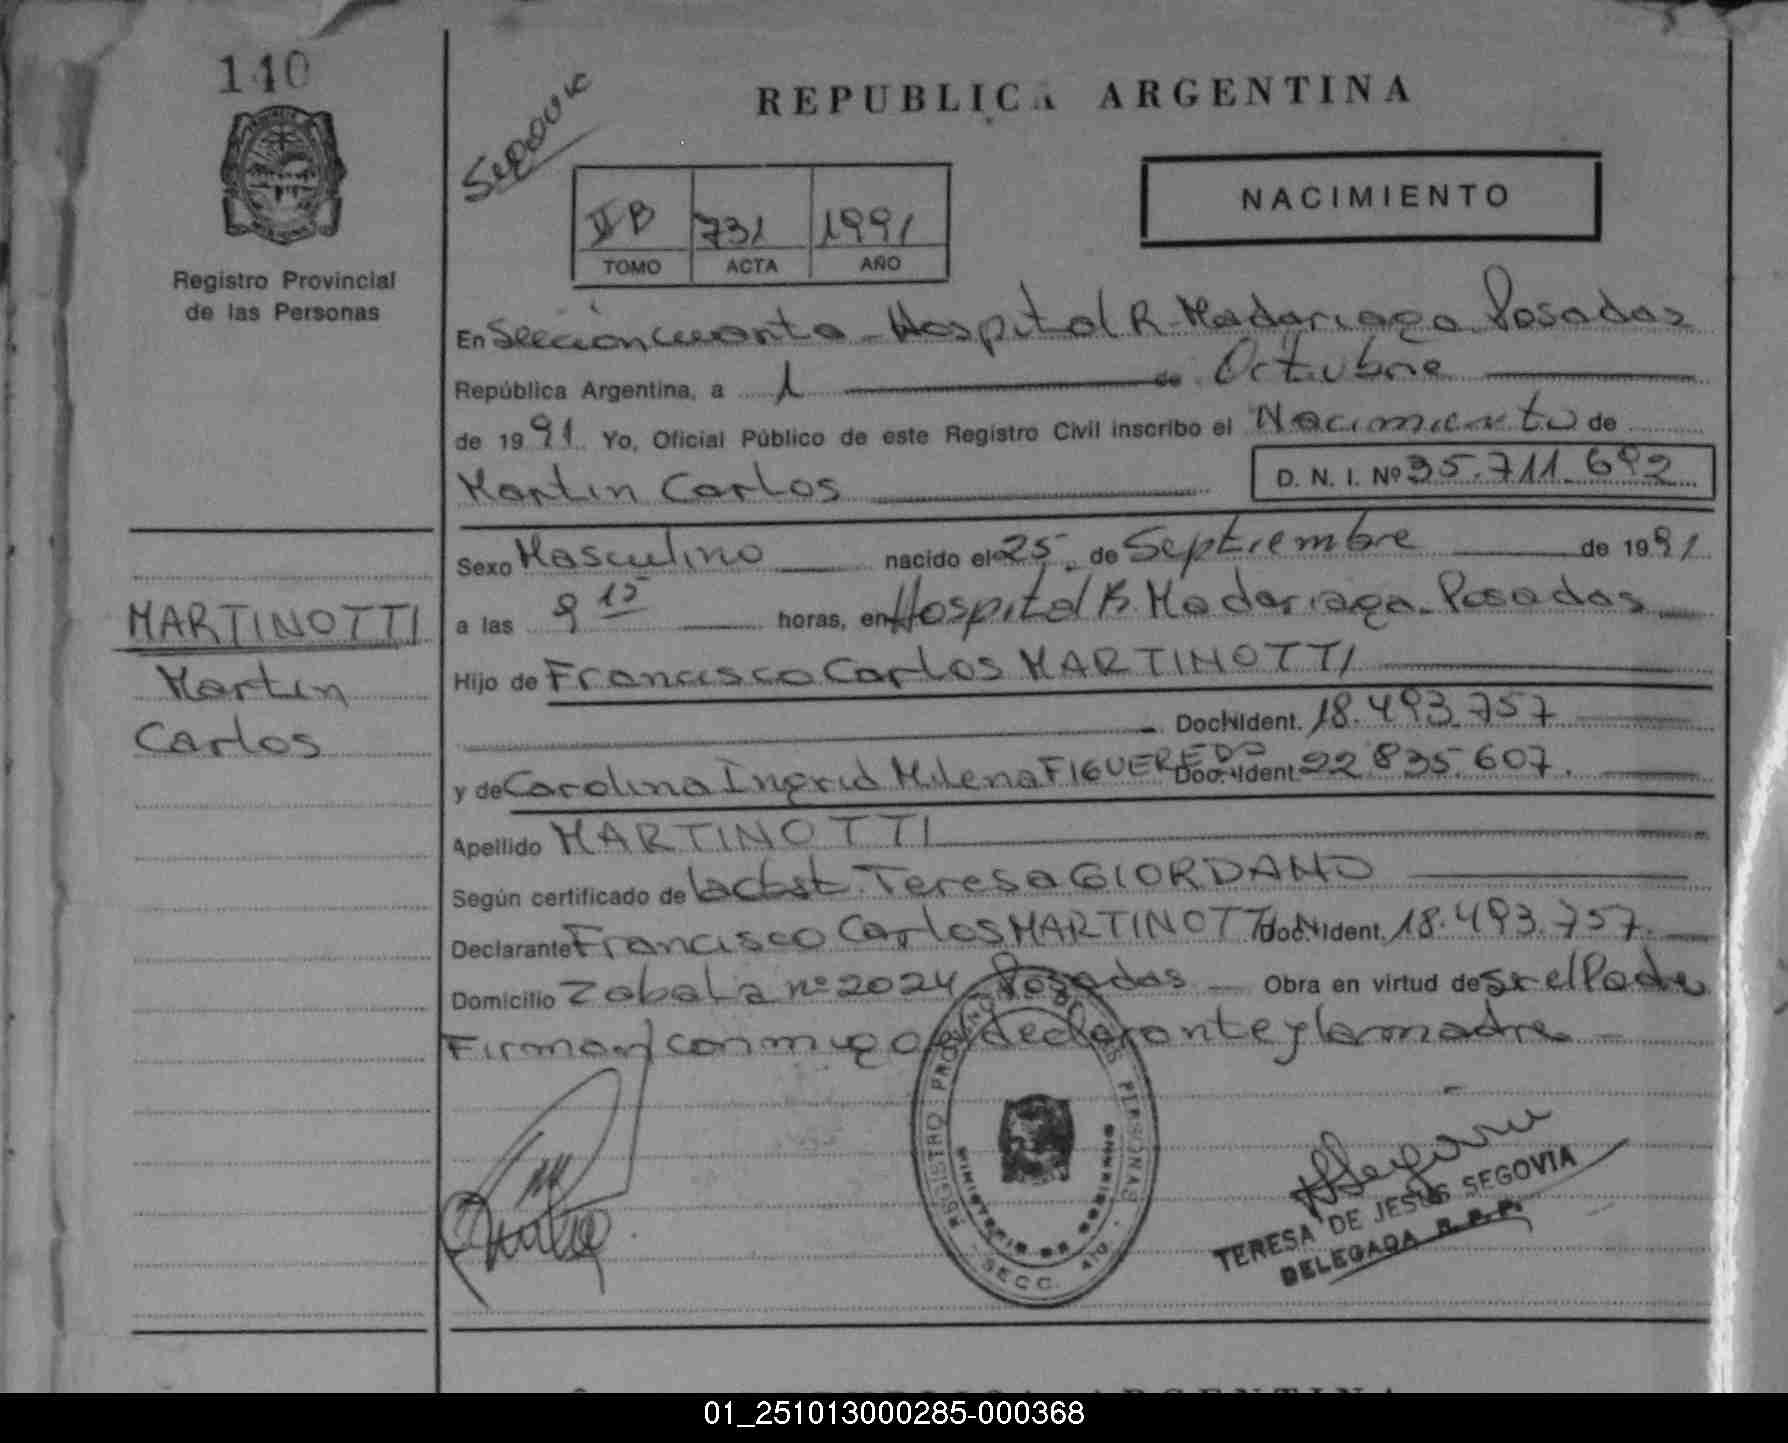 140
REPUBLICA ARGENTINA
NACIMIENTO
II B 731 1991
TOMO ACTA AÑO
Registro Provincial
de las Personas
En Sección cuarta - Hospital R. Madariaga Posadas
República Argentina, a 1 de Octubre
de 1991 Yo, Oficial Público de este Registro Civil inscribo el Nacimiento de
Martin Carlos D. N. I. Nº 35.711.692
Sexo Masculino nacido el 25 de Septiembre de 1991
MARTINOTTI
Martin
Carlos
a las 9 15 horas, en Hospital R. Madariaga - Posadas
Hijo de Francisco Carlos MARTINOTTI
Doc. Ident. 18.493.757
y de Carolina Ingrid Milena FIGUEREDO Doc. Ident. 22.835.607.
Apellido MARTINOTTI
Según certificado de Teresa GIORDANO
Declarante Francisco Carlos MARTINOTTI Doc. Ident. 18.493.757.
Domicilio Zabala nº 2024 Posadas Obra en virtud de ser el Padre
Firman conmigo el declarante y la madre
REGISTRO PERSONAS
MINISTERIO DE GOBIERNO
SECC. 4TA.
TERESA DE JESUS SEGOVIA
DELEGADA R.P.P.
REPUBLICA ARGENTINA
01_251013000285-000368